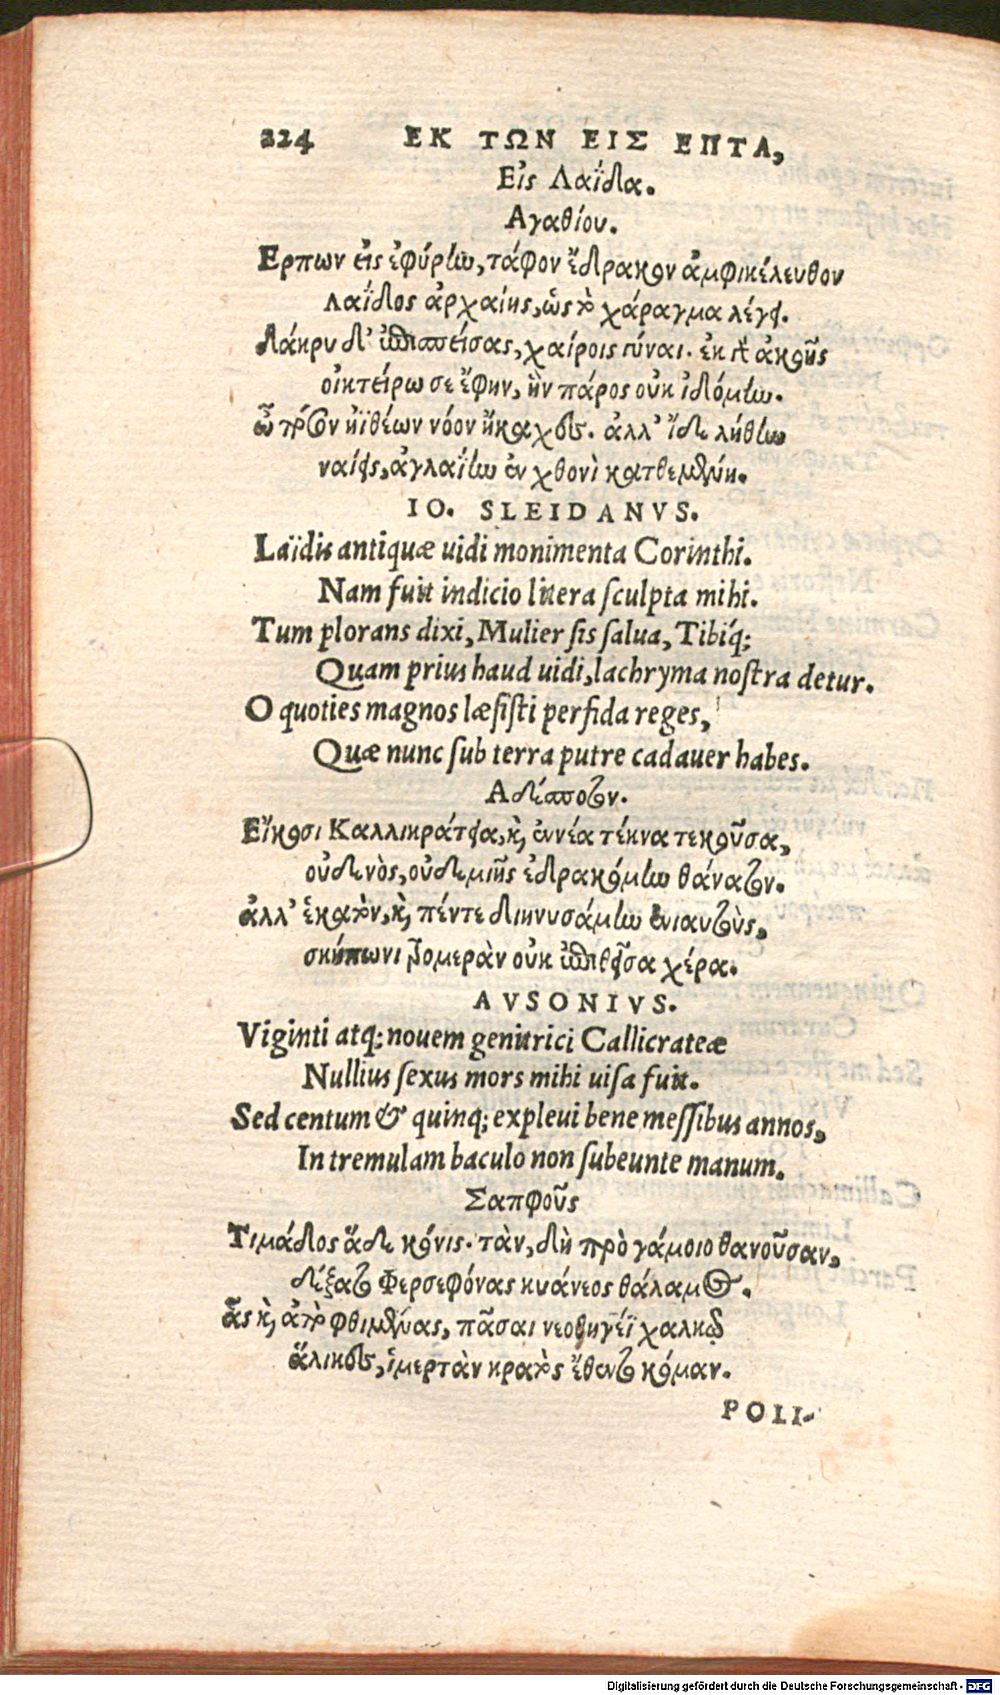 224 ΕΚ ΤΩΝ ΕΙΣ ΕΠΤΑ,
Εἰς Λαΐδα.
Αγαθίου.
Ερπων εἰς ἐφύρην, τάφον ἔδρακον ἀμφικέλευθον
λαΐδος ἀρχαίης, ὡς τὸ χάραγμα λέγει.
Δάκρυ δ' ἐπισπείσας, χαίροις γύναι. ἐκ γὰρ ἀκουῆς
οἰκτείρω σε ἔφην, ἣν πάρος οὐκ ἰδόμην.
ὦ πόσον ἠϊθέων νόον ἤκαχες. ἀλλ' ἴδε λήθην
ναίεις, ἀγλαΐην ἐν χθονὶ κατθεμένη.
IO. SLEIDANVS.
Laïdis antiquæ uidi monimenta Corinthi.
Nam fuit indicio litera ſculpta mihi.
Tum plorans dixi, Mulier ſis ſalua, Tibiq́;
Quam prius haud uidi, lachryma noſtra detur.
O quoties magnos læſiſti perfida reges,
Quæ nunc ſub terra putre cadauer habes.
Αδέσποτον.
Εἴκοσι Καλλικράτεια, καὶ ἐννέα τέκνα τεκοῦσα,
οὐδενὸς, οὐδεμιῆς ἐδρακόμην θάνατον.
ἀλλ' ἑκατὸν, καὶ πέντε διηνυσάμην ἐνιαυτοὺς,
σκήπωνι τρομερὰν οὐκ ἐπιθεῖσα χέρα.
AVSONIVS.
Viginti atq; nouem genitrici Callicrateæ
Nullius ſexus mors mihi uiſa fuit.
Sed centum & quinq; expleui bene meſſibus annos,
In tremulam baculo non ſubeunte manum.
Σαπφοῦς
Τιμάδος ἅδε κόνις. τὰν, δὴ πρὸ γάμοιο θανοῦσαν,
δέξατο Φερσεφόνας κυάνεος θάλαμος.
ἇς καὶ ἀπὸ φθιμένας, πᾶσαι νεοθηγέϊ χαλκῷ
ἅλικες, ἱμερτὰν κρατὸς ἔθεντο κόμαν.
POLI-
Digitalisierung gefördert durch die Deutsche Forschungsgemeinschaft - DFG